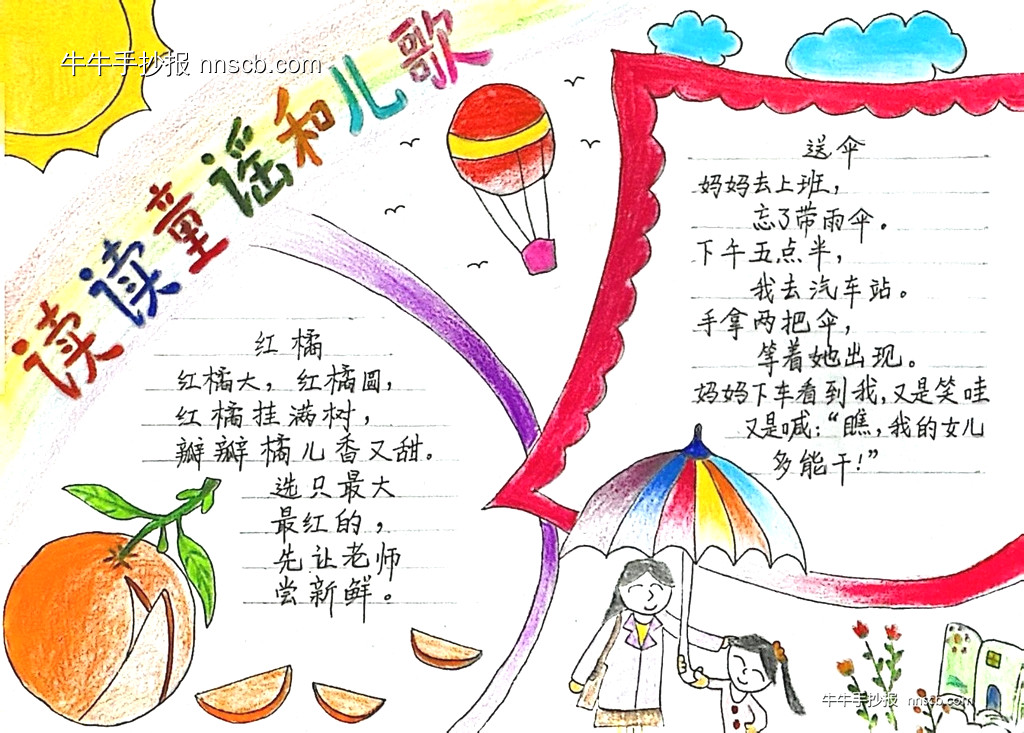 牛牛手抄报 nnscb.com
读读童谣和儿歌
红橘
红橘大，红橘圆，
红橘挂满树，
瓣瓣橘儿香又甜。
选只最大
最红的，
先让老师
尝新鲜。
送伞
妈妈去上班，
忘了带雨伞。
下午五点半，
我去汽车站。
手拿两把伞，
等着她出现。
妈妈下车看到我，又是笑哇
又是喊：“瞧，我的女儿
多能干！”
牛牛手抄报 nnscb.com